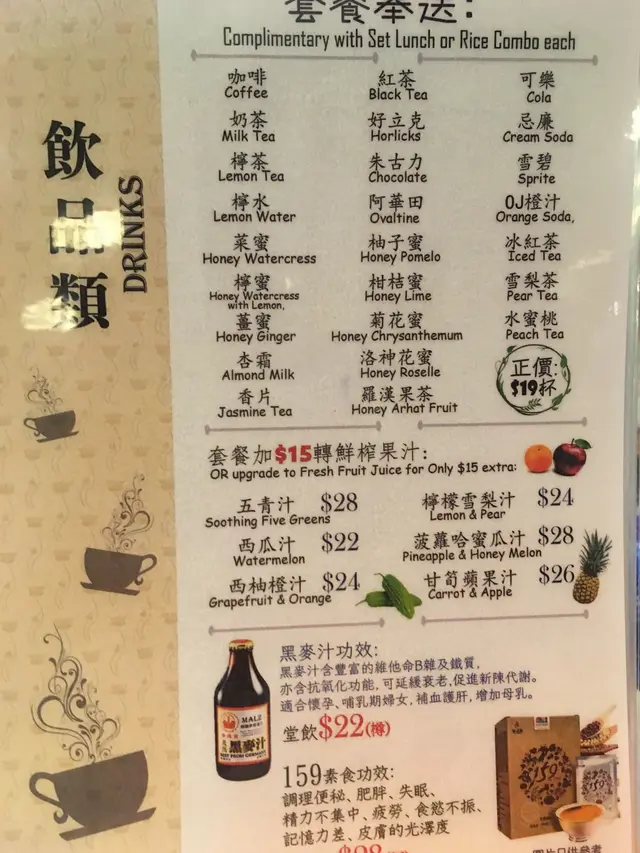 飲品類
DRINKS
套餐奉送:
Complimentary with Set Lunch or Rice Combo each
咖啡 紅茶 可樂
Coffee Black Tea Cola
奶茶 好立克 忌廉
Milk Tea Horlicks Cream Soda
檸茶 朱古力 雪碧
Lemon Tea Chocolate Sprite
檸水 阿華田 OJ橙汁
Lemon Water Ovaltine Orange Soda,
菜蜜 柚子蜜 冰紅茶
Honey Watercress Honey Pomelo Iced Tea
檸蜜 柑桔蜜 雪梨茶
Honey Watercress with Lemon, Honey Lime Pear Tea
薑蜜 菊花蜜 水蜜桃
Honey Ginger Honey Chrysanthemum Peach Tea
杏霜 洛神花蜜
Almond Milk Honey Roselle
香片 羅漢果茶
Jasmine Tea Honey Arhat Fruit
正價:
$19杯
套餐加$15轉鮮榨果汁:
OR upgrade to Fresh Fruit Juice for Only $15 extra:
五青汁 $28 檸檬雪梨汁 $24
Soothing Five Greens Lemon & Pear
西瓜汁 $22 菠蘿哈蜜瓜汁 $28
Watermelon Pineapple & Honey Melon
西柚橙汁 $24 甘筍蘋果汁 $26
Grapefruit & Orange Carrot & Apple
黑麥汁功效:
黑麥汁含豐富的維他命B雜及鐵質,
亦含抗氧化功能, 可延緩衰老,促進新陳代謝。
適合懷孕、哺乳期婦女, 補血護肝, 增加母乳。
堂飲$22(樽)
MALZ
黑麥汁
159素食功效:
調理便秘、肥胖、失眠、
精力不集中、疲勞、食慾不振、
記憶力差、皮膚的光澤度
159
圖片只供參考